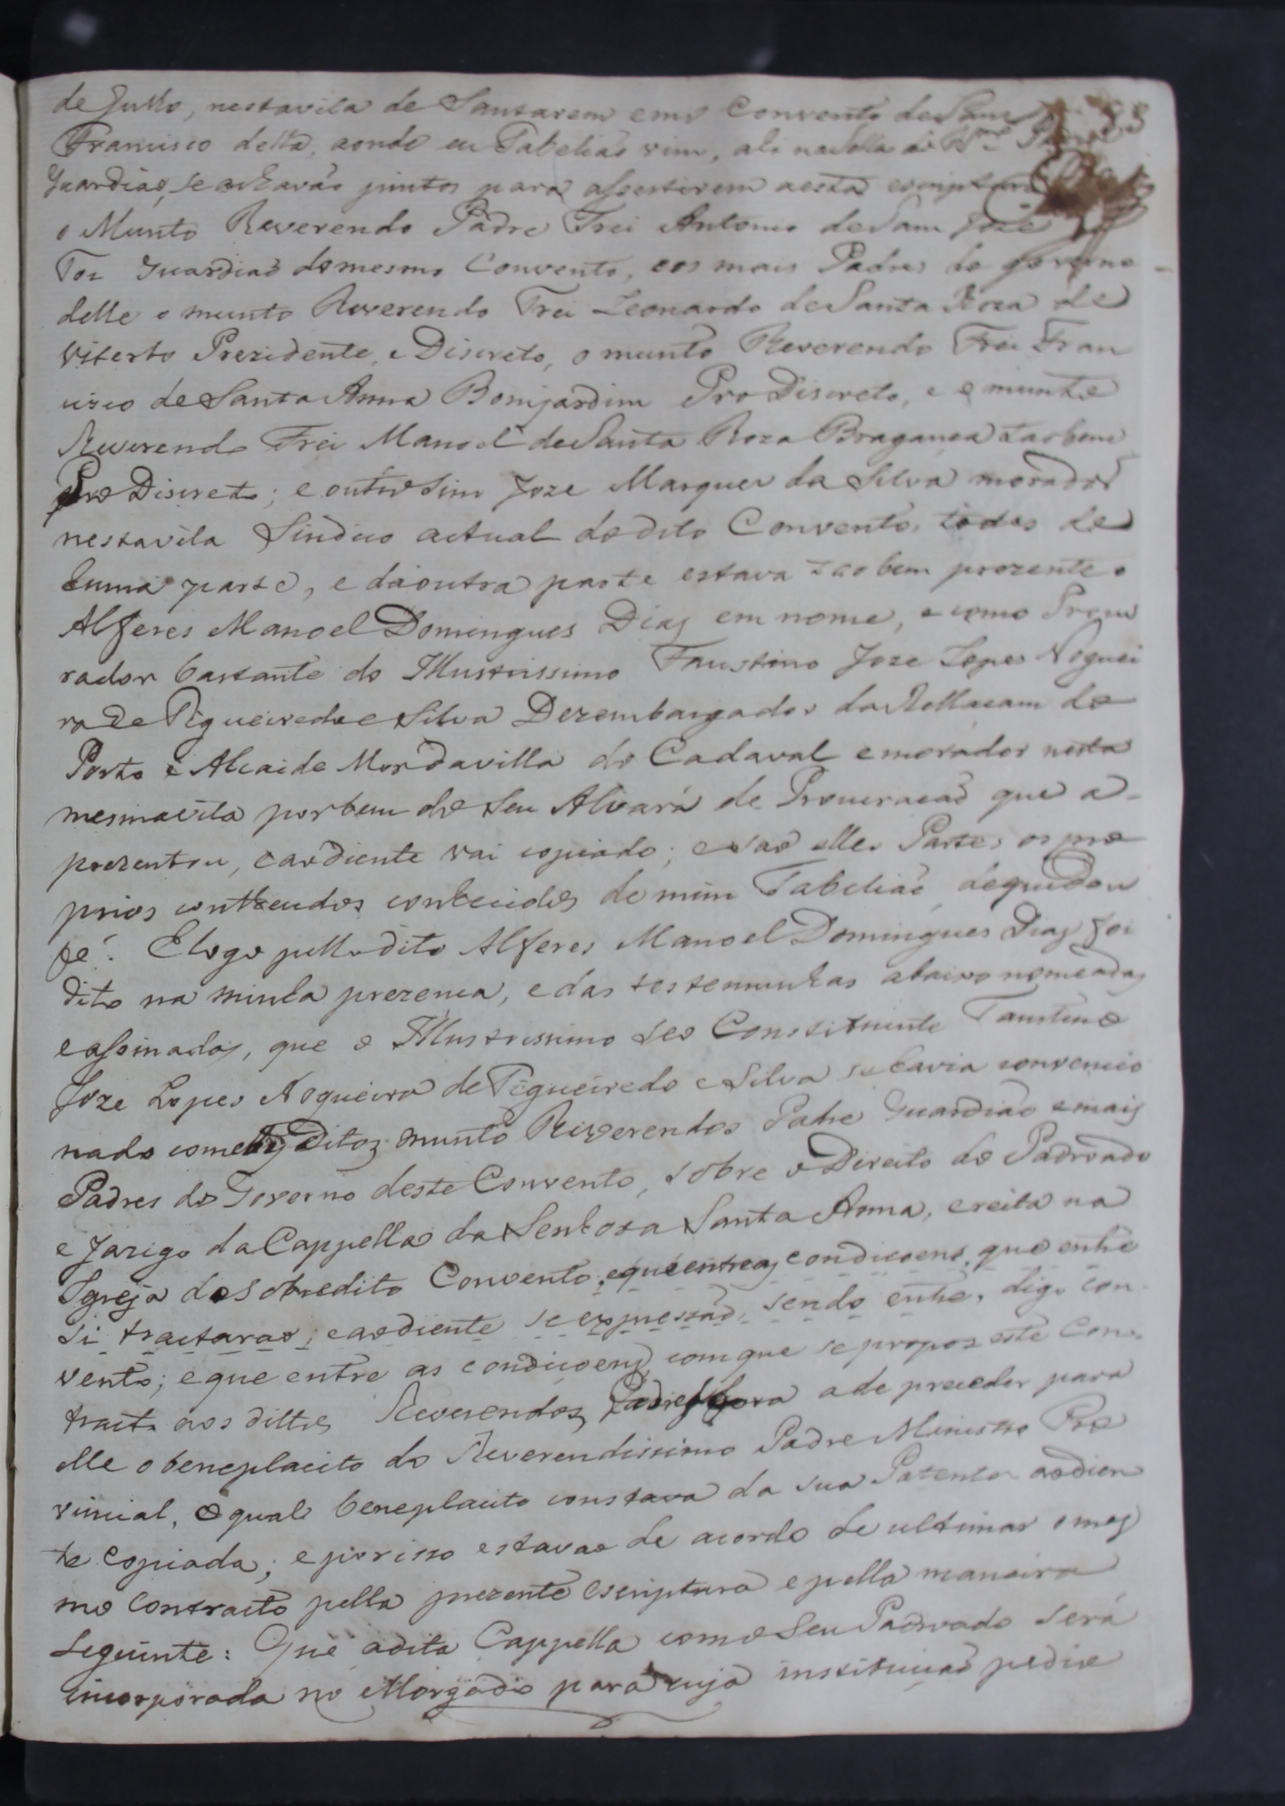 de Julho, nestavila de Santarem e no Convento de Sam
Francisco della, aonde eu Tabeliaõ vim, ali na Sella do
Guardiaõ, se achavaõ juntos para assestirem aesta escriptura
o Munto Reverendo Padre Frei Antonio de Sam Joze
Guardiaõ domesmo Convento, eos mais Padres do governo
delle o munto Reverendo Frei Leonardo de Santa Roza de
Viterbo Prezidente, e Discreto, o munto Reverendo Frei Fran
cisco de Santa Anna Bomjardim Pro Discreto, e o munto
Reverendo Frei Manoel de Santa Roza Bragança taobem
Pro Discreto; e outrosim Joze Marques da Silva morador
nestavila Sindico actual do dito Convento, todos de
huma parte, e daoutra parte estava taobem prezente o
Alferes Manoel Domingues Dias em nome, e como Procu
rador bastante do Illustrissimo Faustino Joze Lopes Noguei
ra de Figueiredo e Silva Dezembargador da Rellacam do
Porto e Alcaide Mor davilla do Cadaval emorador nesta
mesmavila porbem do Seu Alvará de Procuracaõ que a-
prezentou, eaodiente vai copiado; esaõ elles Partes os pro
prios contheudos conhecidos de mim Tabeliaõ, dequedou
fé. Elogo pello dito Alferes Manoel Domingues Dias foi
dito na minha prezenca, edas testemunhas abaixo nomeadas
eassinadas, que o Illustrissimo seo Constituinte Faustino
Joze Lopes Nogueira de Figueiredo e Silva se havia convencio
nado com ditos munto Reverendos Padre Guardiaõ emais
Padres do Governo deste Convento, sobre o Direito do Padroado
e Jazigo da Cappella da Senhora Santa Anna, ereita na
Igreja do Sobredito Convento, eque entreas condicoens, que entre
si tractaraõ, eaodiente se expressaõ, sendo entre, digo Con-
vento; e que entre as condicoens, comque se propos este Con-
tracto aos dittos Reverendos Padres fora ade preceder para
elle o beneplacito do Reverendissimo Padre Ministro Pro
vincial, o qual beneplacito constava da sua Patente aodien
te copiada; e porisso estavaõ de acordo de ultimar o mes
mo Contracto pella prezente escriptura e pella maneira
Seguinte: Que adita Cappella como Seu Padroado será
incorporada no Morgado para cuja instituicaõ pedio